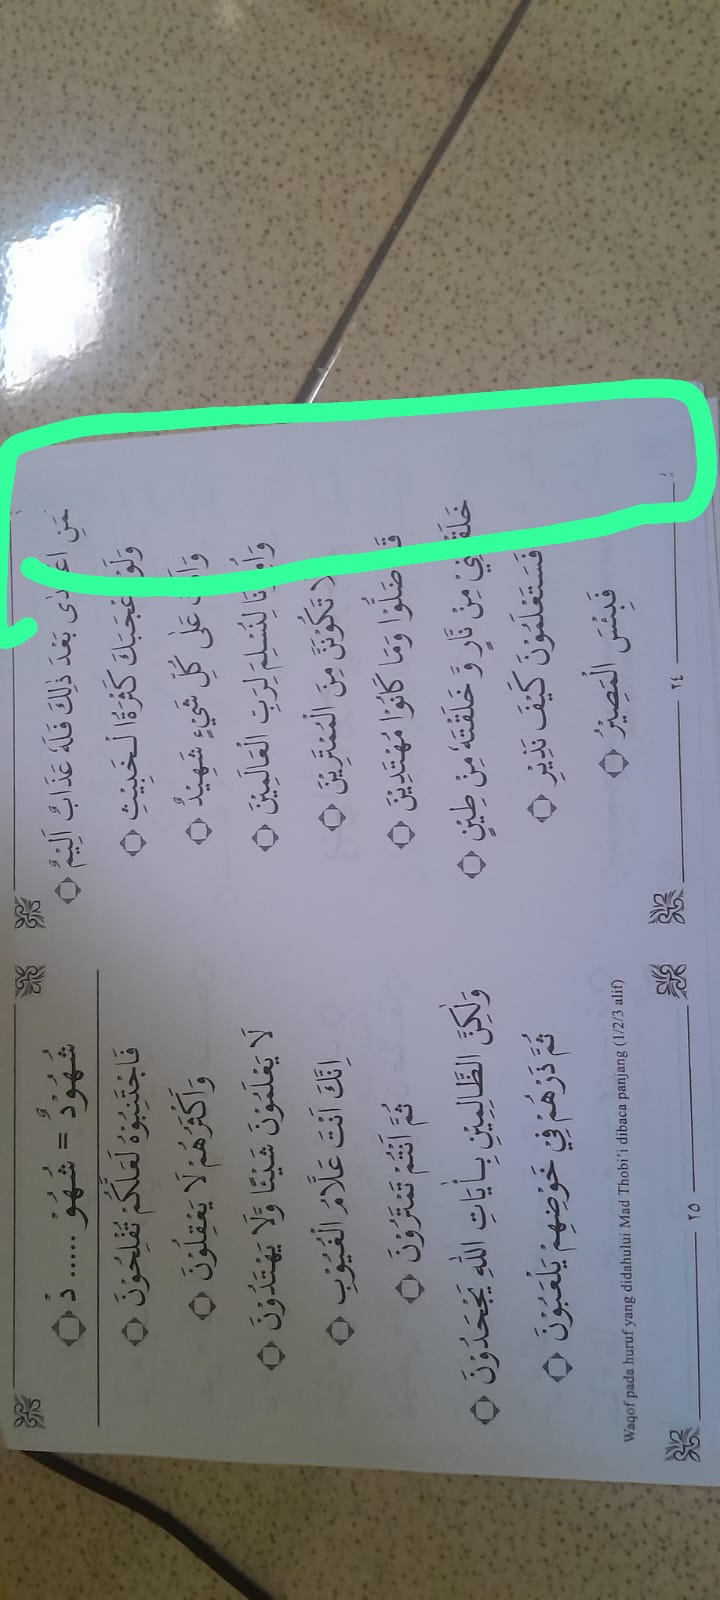 بَعْدَ ذٰلِكَ فَلَهٗ عَذَابٌ اَلِيْمٌ
كَثْرَةُ الْخَبِيْثِ
عَلٰى كُلِّ شَيْءٍ شَهِيْدٌ
لِنُسْلِمَ لِرَبِّ الْعَالَمِيْنَ
تَكُوْنَنَّ مِنَ الْمُمْتَرِيْنَ
ضَلُّوْا وَمَا كَانُوْا مُهْتَدِيْنَ
مِنْ نَّارٍ وَّ خَلَقْتَهٗ مِنْ طِيْنٍ
فَسَتَعْلَمُوْنَ كَيْفَ نَذِيْرِ
فَبِئْسَ الْمَصِيْرُ
٢٤
شُهُوْدٌ = شُهُوْ ..... دْ
فَاجْتَنِبُوْهُ لَعَلَّكُمْ تُفْلِحُوْنَ
وَاَكْثَرُهُمْ لَا يَعْقِلُوْنَ
لَا يَعْلَمُوْنَ شَيْئًا وَّلَا يَهْتَدُوْنَ
اِنَّكَ اَنْتَ عَلَّامُ الْغُيُوْبِ
ثُمَّ اَنْتُمْ تَمْتَرُوْنَ
وَلٰكِنَّ الظَّالِمِيْنَ بِاٰيَاتِ اللهِ يَجْحَدُوْنَ
ثُمَّ ذَرْهُمْ فِيْ خَوْضِهِمْ يَلْعَبُوْنَ
Waqof pada huruf yang didahului Mad Thobi'i dibaca panjang (1/2/3 alif)
٢٥